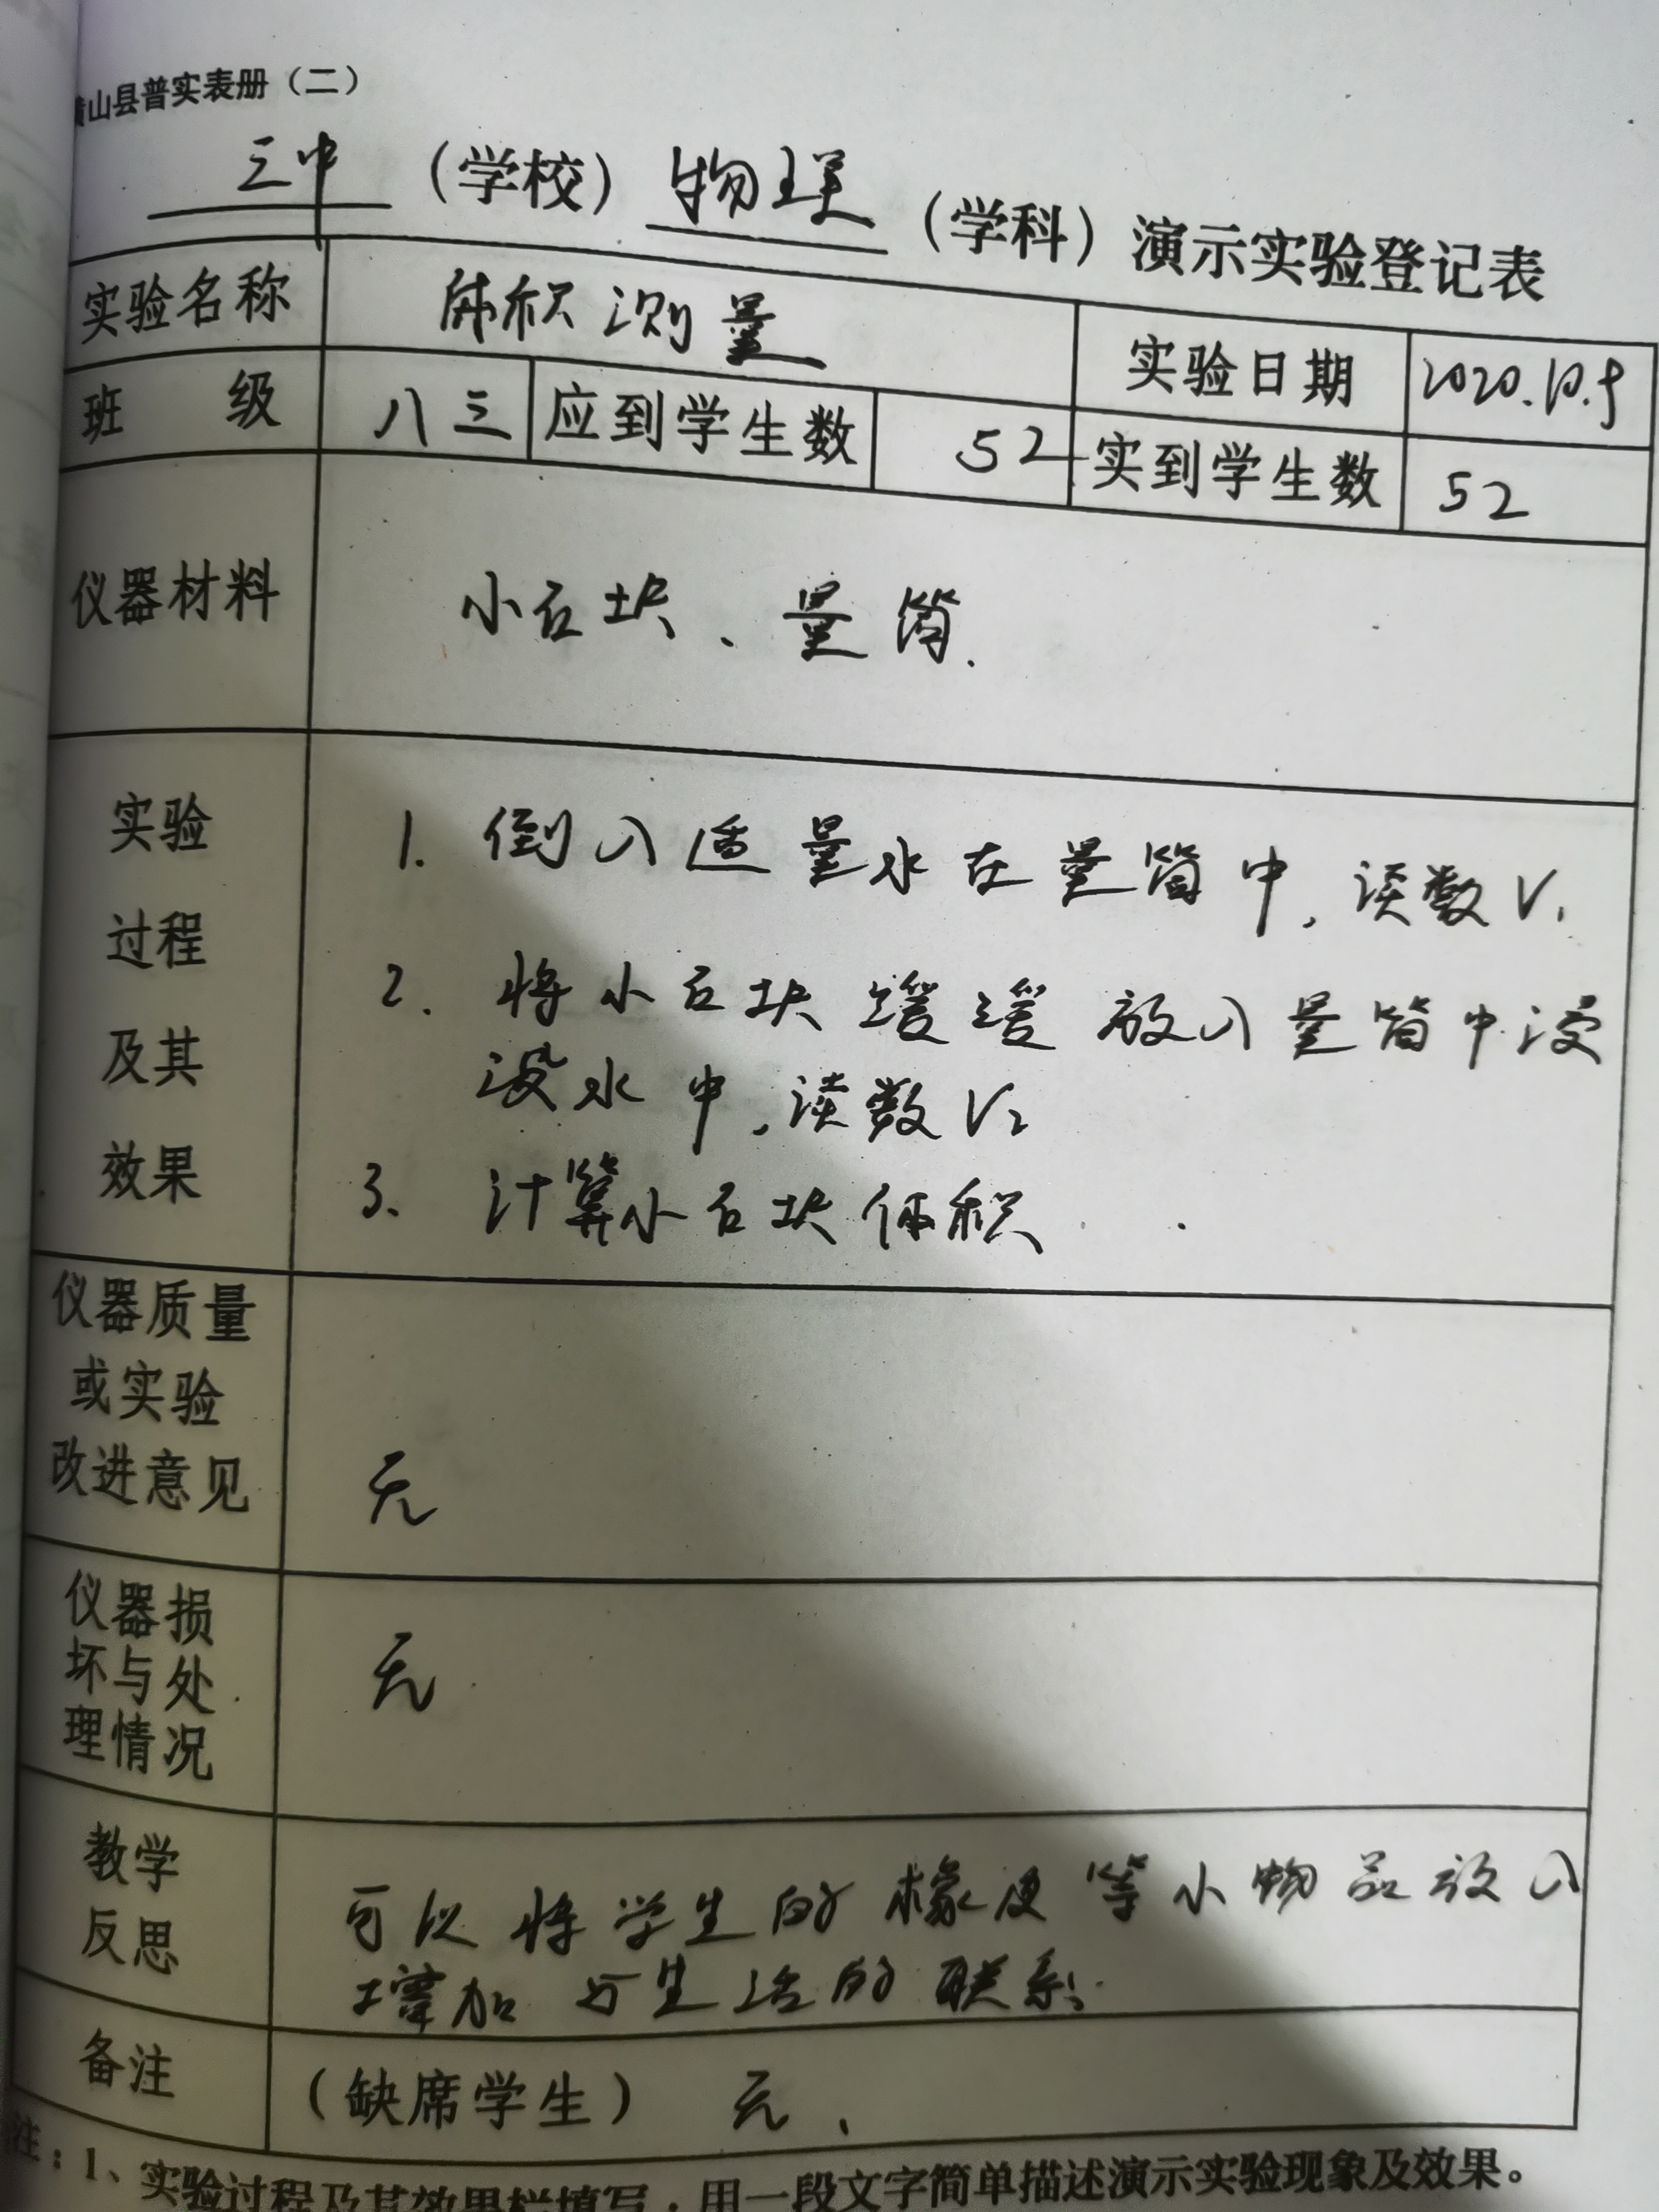 山县普实表册（二）
三中（学校）物理（学科）演示实验登记表
实验名称 体积测量 实验日期 2020.10.9
班 级 八三 应到学生数 52 实到学生数 52
仪器材料 小石块、量筒.
实验
过程
及其
效果
1. 倒入适量水在量筒中,读数V₁
2. 将小石块缓缓放入量筒中浸
没水中,读数V₂
3、计算小石块体积
仪器质量
或实验
改进意见
无
仪器损
坏与处
理情况
无
教学
反思
可以将学生的橡皮等小物品放入
增加与生活的联系.
备注 （缺席学生） 无、
注：1、实验过程及其效果栏填写，用一段文字简单描述演示实验现象及效果。